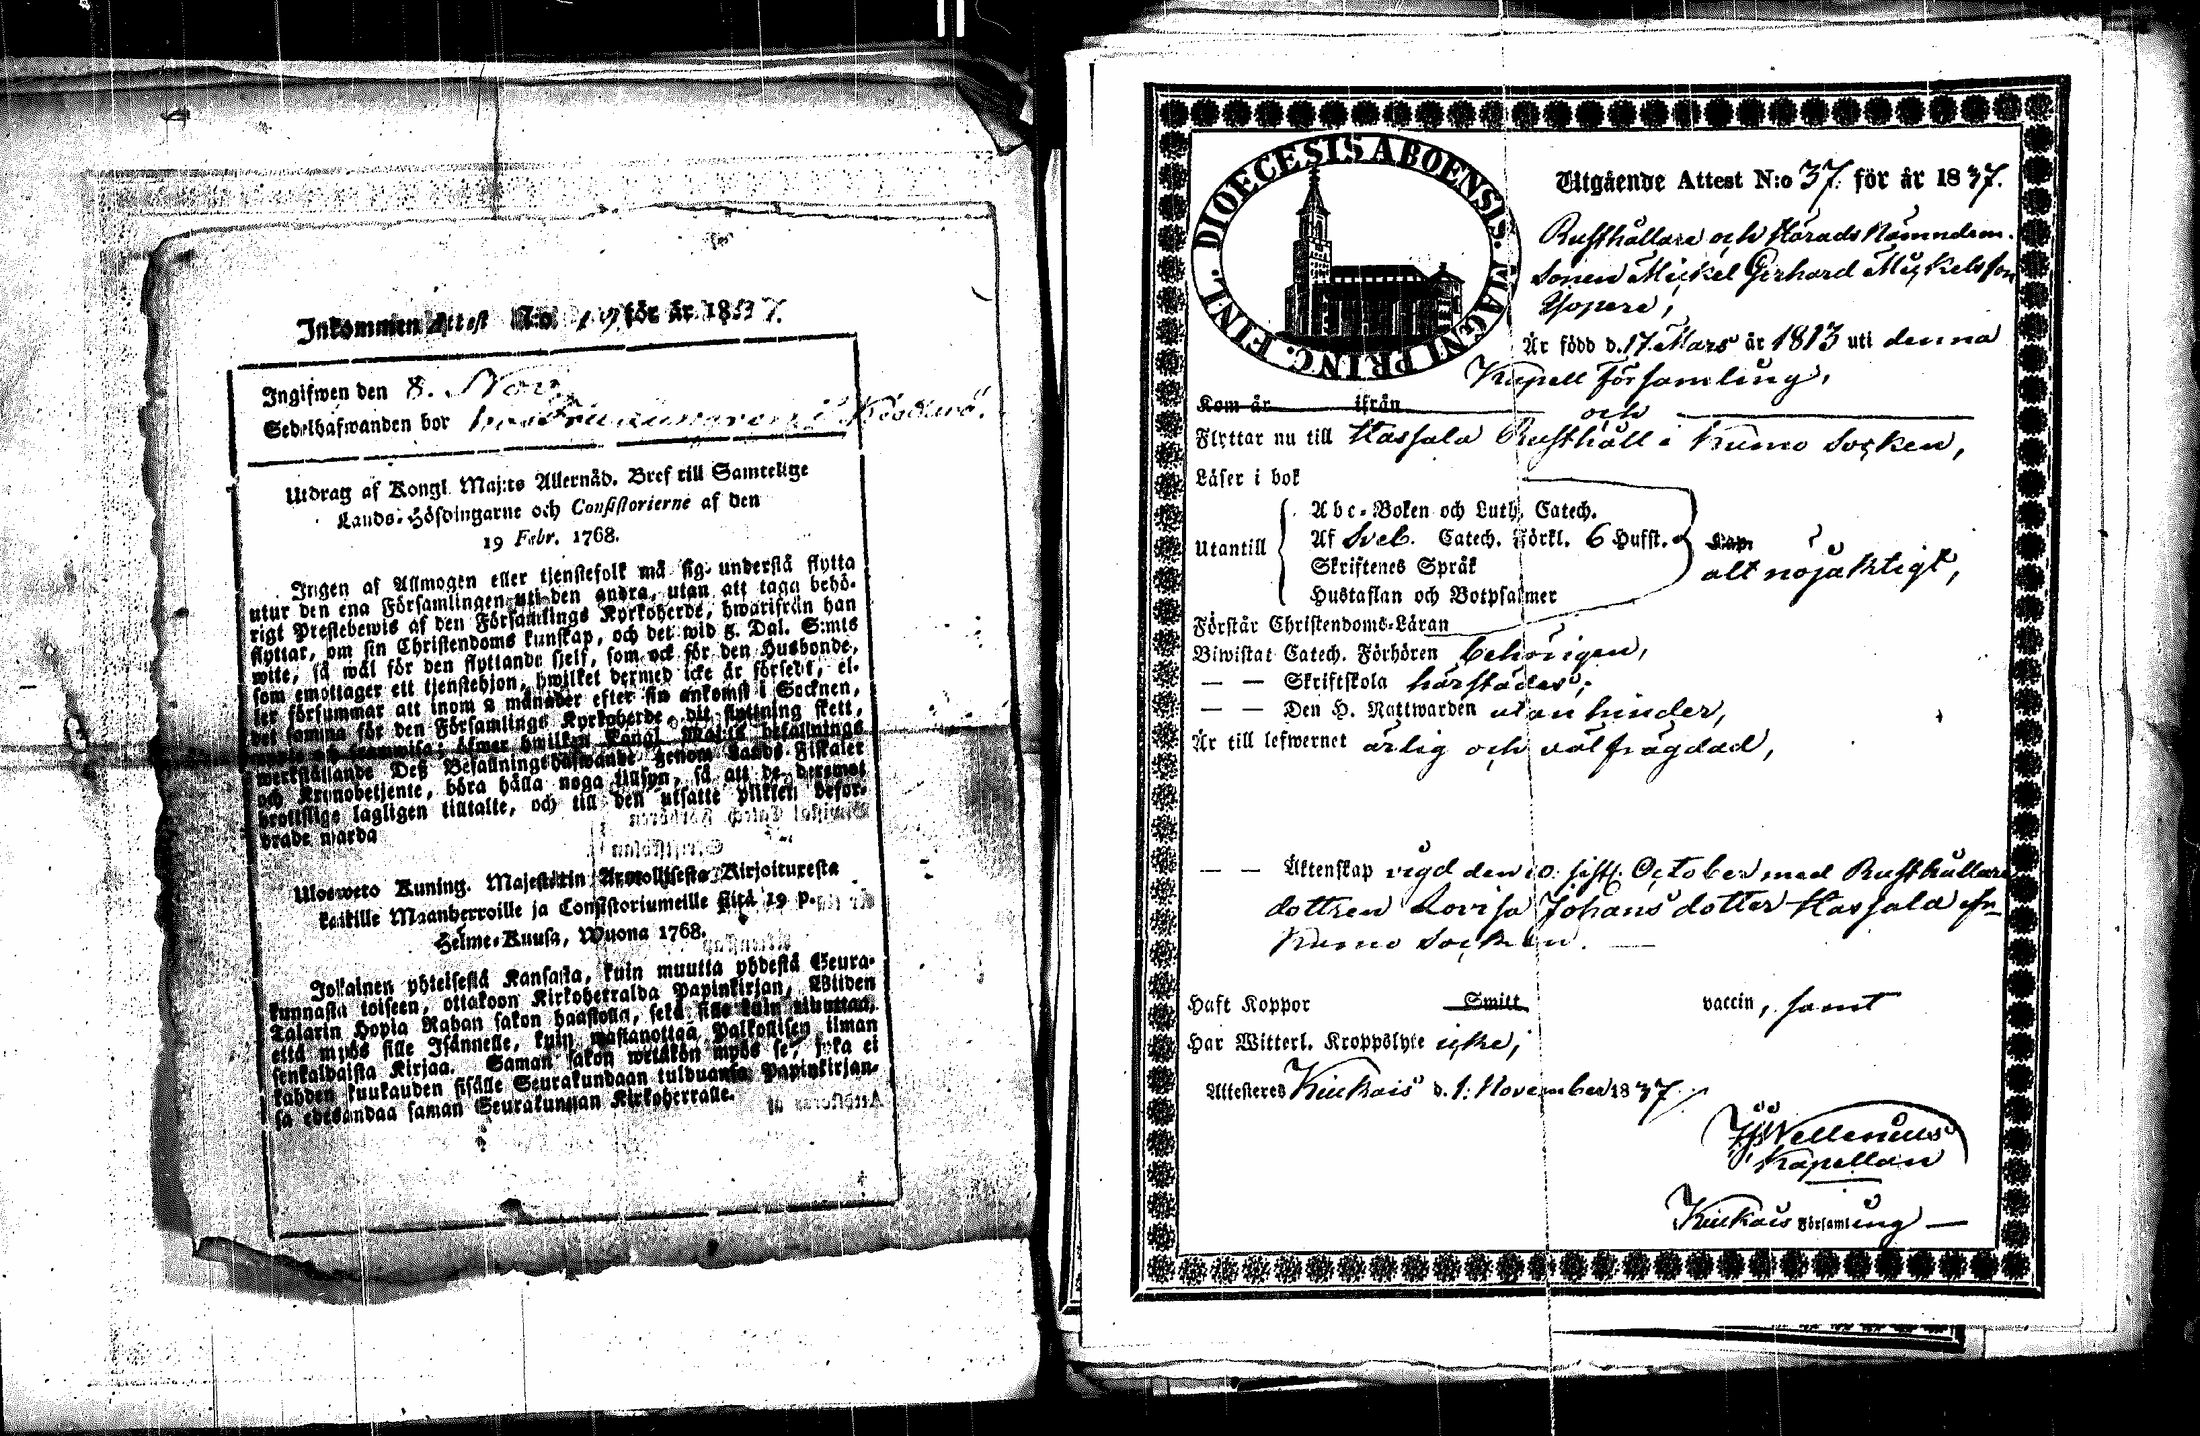 Inkommen Attest N:o 19 för år 1837.
Ingifwen den 8. Nov.
Sedelhafwanden bor hos
Utdrag af Kongl. Maj:ts Allernåd. Bref till Samtelige
Lands-Höfdingarne och Consistorierne af den
19 Febr. 1768.
Ingen af Allmogen eller tjenstefolk må sig understå flytta
utur den ena Församlingen uti den andra, utan att taga behö-
rigt Prestebewis af den Församlings Kyrkoherde, hwarifrån han
flyttar, om sin Christendoms kunskap, och det wid 5. Dal. S:mts
wite, så wäl för den flyttande sjelf, som ock för den Husbonde,
som emottager ett tjenstehjon, hwilket dermed icke är försedt, el-
ler försummar att inom 2 månader efter sin ankomst i Socknen,
det samma för den Församlings Kyrkoherde, dit flyttning skett,
upwisa; öfwer hwilken Kongl. Maj:ts befallnings
werkställande Dess Befallningshafwande genom Lands-Fiskaler
och Kronobetjente, böra hålla noga tillsyn, så att de deremot
brottslige lagligen tilltalte, och till den utsatte plikten befor-
drade warda
Ulosweto Kuning. Majestetin Armollisesta Kirjoituresta
kaikille Maanherroille ja Consistoriumeille siitä 19 p.
Helme-Kuusa, Wuona 1768.
Jokainen yhteisestä Kansasta, kuin muutta yhdestä Seura-
kunnasta toiseen, ottakoon Kirkoherralda Papinkirjan, Wiiden
Talarin Hopia Rahan sakon haastolla, sekä sille kuin muuttaa,
että myös sille Isännelle, kuin wastanottaa Palkollisen ilman
senkaldaista Kirjaa. Saman sakon wetäkön myös se, joka ei
kahden kuukauden sisälle Seurakundaan tulduansa Papinkirjan-
sa edesandaa saman Seurakunnan Kirkoherralle.
DIOECESIS ABOENSIS. MAGNI PRINC. FINL.
Utgående Attest N:o 37. för år 1837.
Rusthållare och Härads Nämndem.
Sonen Mickel Gerhard Mickelsson
Yopere,
Är född d. 17 Mars år 1813 uti denna
Kapell Församling,
Kom år ifrån och
Flyttar nu till Hassala Rusthåll i Kumo Socken,
Läser i bok
Utantill
Abc-Boken och Luth. Catech.
Af Sveb. Catech. Förkl. 6 Hufst. Kap.
Skriftenes Språk
Hustaflan och Botpsalmer
alt nöjaktigt,
Förstår Christendoms-Läran
Biwistat Catech. Förhören behörigen,
— — Skriftskola härstädes;
— — Den H. Nattwarden utan hinder,
Är till lefwernet ärlig och välfrägdad,
— — Äktenskap vigd den 10. sistl. October med Rusthållare
dottren Lovisa Johansdotter Hassala fr.
Kumo Socken. —
Haft Koppor Smitt vaccin, samt
Har Witterl. Kroppslyte icke;
Attesteres Kiukais d. 1. November 1837.
Wellenius
Kapellan
Kiukais Församling —